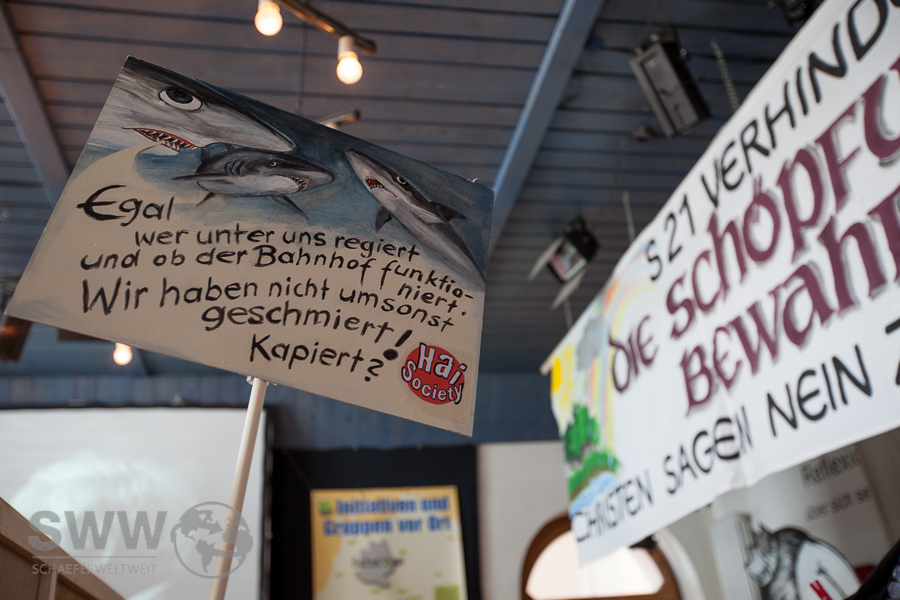 Egal
wer unter uns regiert
und ob der Bahnhof funktio-
niert.
Wir haben nicht umsonst
geschmiert!
Kapiert?
Hai
Society
S 21 VERHIND
DIE SCHÖPFU
BEWAH
CHRISTEN SAGEN NEIN Z
Initiativen und
Gruppen vor Ort
SWW
SCHAEFERSWELTWEIT